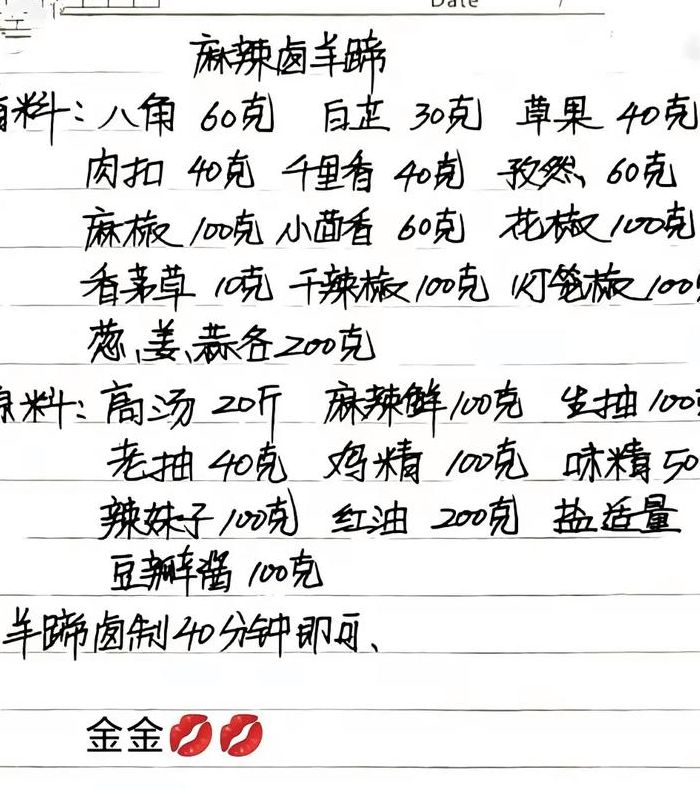 Date
麻辣卤羊蹄
料：八角 60克 白芷 30克 草果 40克
肉扣 40克 千里香 40克 孜然、60克
麻椒 100克 小茴香 60克 花椒 100克
香茅草 10克 干辣椒 100克 灯笼椒 100
葱、姜、蒜各200克
料：高汤 20斤 麻辣鲜 100克 生抽 100
老抽 40克 鸡精 100克 味精 50
辣妹子 100克 红油 200克 盐适量
豆瓣酱 100克
羊蹄卤制40分钟即可、
金金💋💋